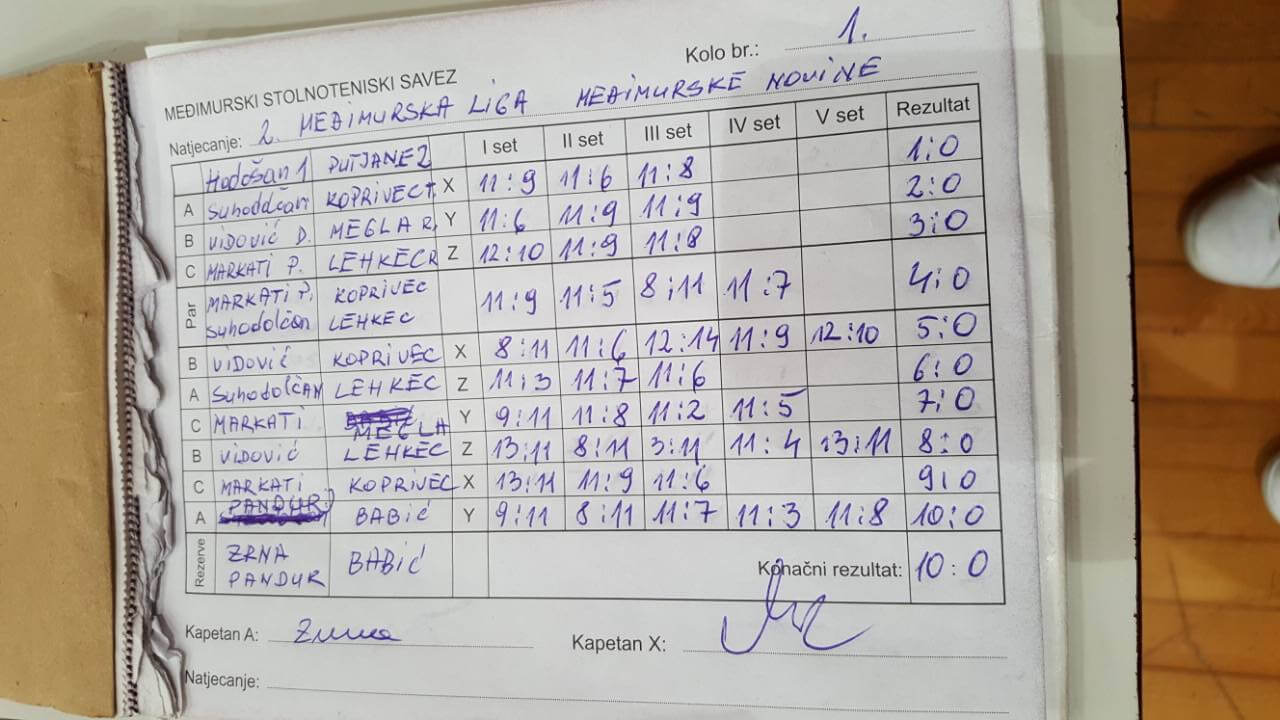 Kolo br.: 1.
MEĐIMURSKI STOLNOTENISKI SAVEZ
Natjecanje: 2. MEĐIMURSKA LIGA MEĐIMURSKE NOVINE
Hodošan 1 PUTJANE 2 I set II set III set IV set V set Rezultat
A Suhodolčan KOPRIVEC X 11:9 11:6 11:8 1:0
B VIDOVIĆ D. MEGLA R. Y 11:6 11:9 11:9 2:0
C MARKATI P. LEHKEC R Z 12:10 11:9 11:8 3:0
Par MARKATI P. KOPRIVEC 11:9 11:5 8:11 11:7 4:0
Suhodolčan LEHKEC
B VIDOVIĆ KOPRIVEC X 8:11 11:6 12:14 11:9 12:10 5:0
A SuhodolčAN LEHKEC Z 11:3 11:7 11:6 6:0
C MARKATI MEGLA Y 9:11 11:8 11:2 11:5 7:0
B VIDOVIĆ LEHKEC Z 13:11 8:11 3:11 11:4 13:11 8:0
C MARKATI KOPRIVEC X 13:11 11:9 11:6 9:0
A PANDUR BABIĆ Y 9:11 8:11 11:7 11:3 11:8 10:0
Rezerve ZRNA BABIĆ Konačni rezultat: 10:0
PANDUR
Kapetan A: Zrna Kapetan X:
Natjecanje: